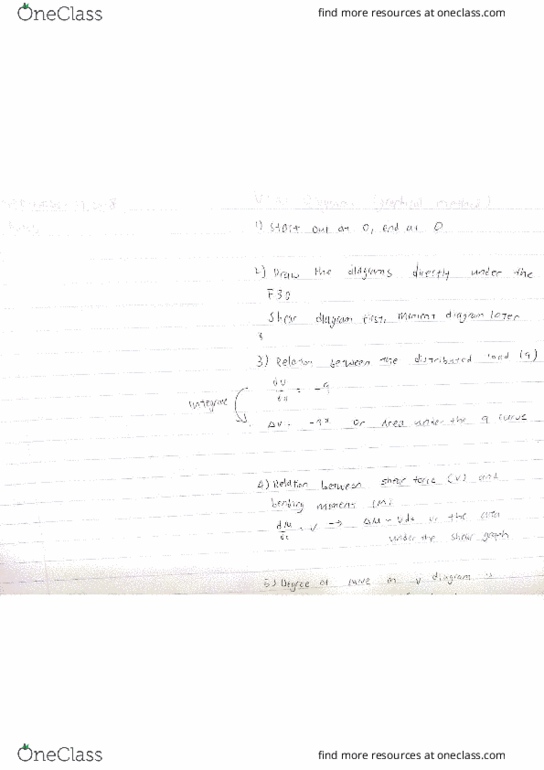 OneClass
find more resources at oneclass.com
Diagrams (graphical method)
1) Start out at 0, end at 0
2) Draw the diagrams directly under the
FBD
Shear diagram first, moment diagram later
3) Relation between the distributed load (q)
= -q
integrate
ΔV = -qx or area under the q curve
4) Relation between shear force (V) and
bending moment (M)
dM/dx = V → ΔM = Vdx or the area
under the shear graph
5) Degree of curve on V diagram is
OneClass
find more resources at oneclass.com